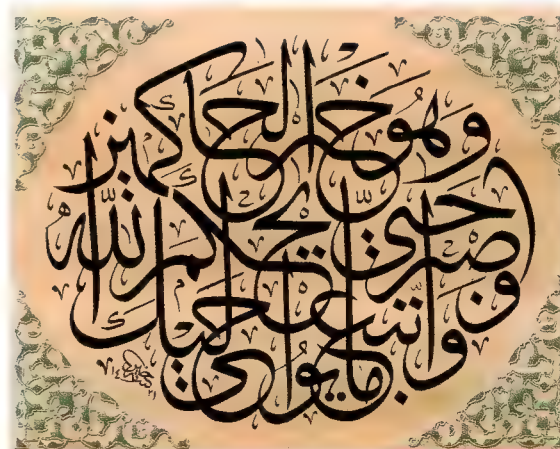 واتبع ما يوحى إليك
واصبر حتى يحكم الله
وهو خير الحاكمين